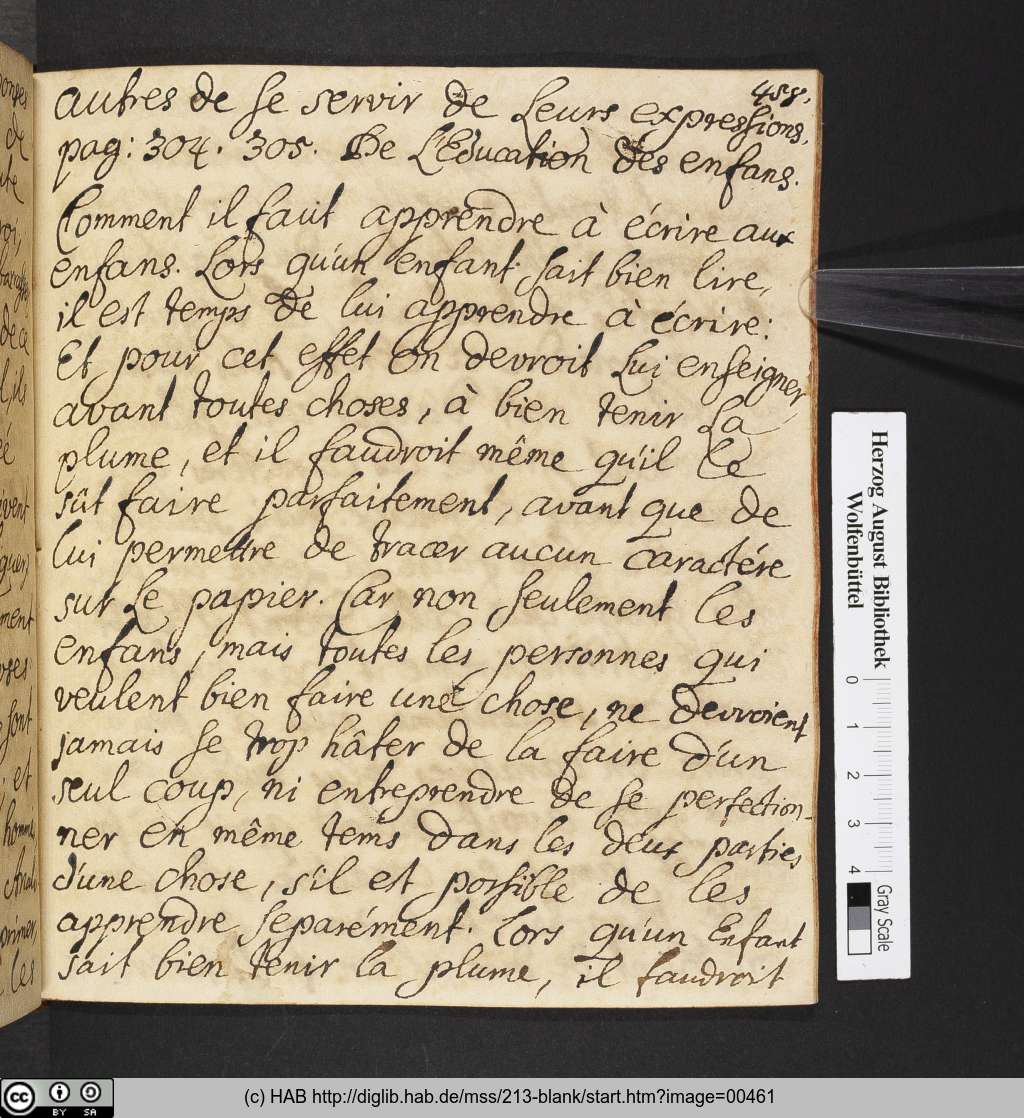 458.
autres de se servir de Leurs expressions.
pag: 304. 305. De L'Education des enfans.
Comment il faut apprendre à écrire aux
enfans. Lors qu'un enfant sait bien lire,
il est temps de lui apprendre à écrire:
Et pour cet effet on devroit Lui enseigner
avant toutes choses, à bien tenir La
plume, et il faudroit même qu'il Le
sût faire parfaitement, avant que de
lui permettre de tracer aucun caractére
sur Le papier. Car non seulement les
enfans, mais toutes les personnes qui
veulent bien faire une chose, ne devroient
jamais se trop hâter de la faire d'un
seul coup, ni entreprendre de se perfection-
ner en même tems dans les deux parties
d'une chose, s'il est possible de les
apprendre separément. Lors qu'un Enfant
sait bien tenir la plume, il faudroit
Herzog August Bibliothek
Wolfenbüttel
0
1
2
3
4
Gray Scale
cc BY SA
(c) HAB http://diglib.hab.de/mss/213-blank/start.htm?image=00461